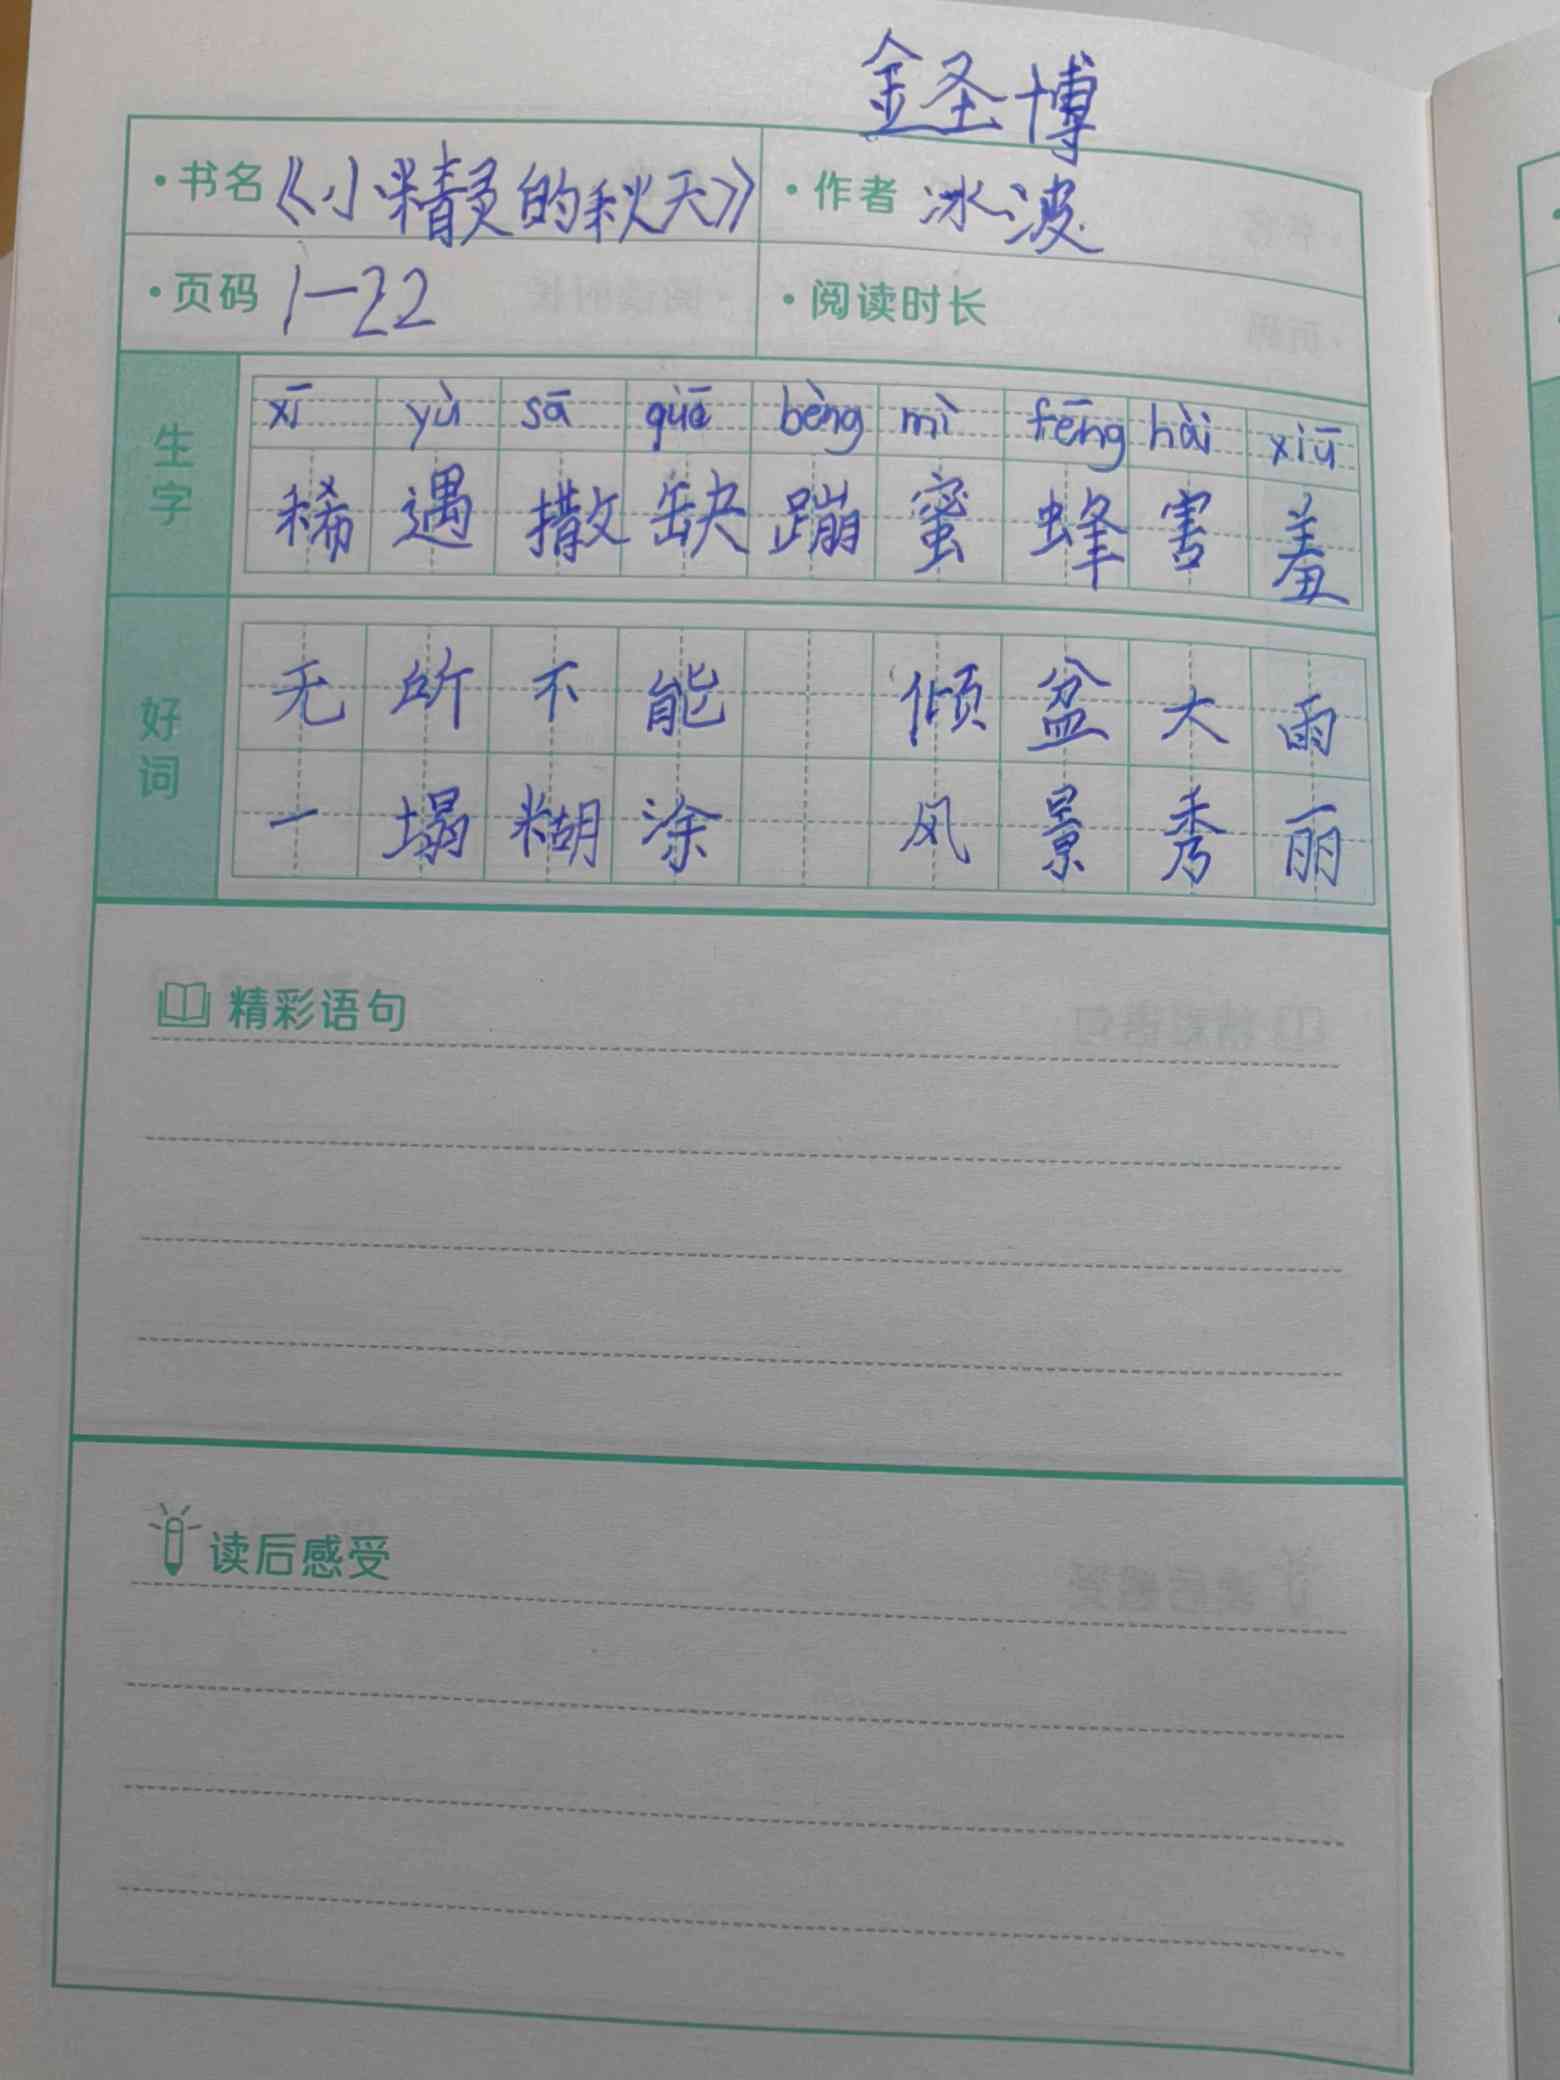 金圣博
·书名《小精灵的秋天》 ·作者 冰波
·页码 1—22 ·阅读时长
生字
xī yù sā quē bèng mì fēng hài xiū
稀 遇 撒 缺 蹦 蜜 蜂 害 羞
好词
无所不能 倾盆大雨
一塌糊涂 风景秀丽
精彩语句
读后感受